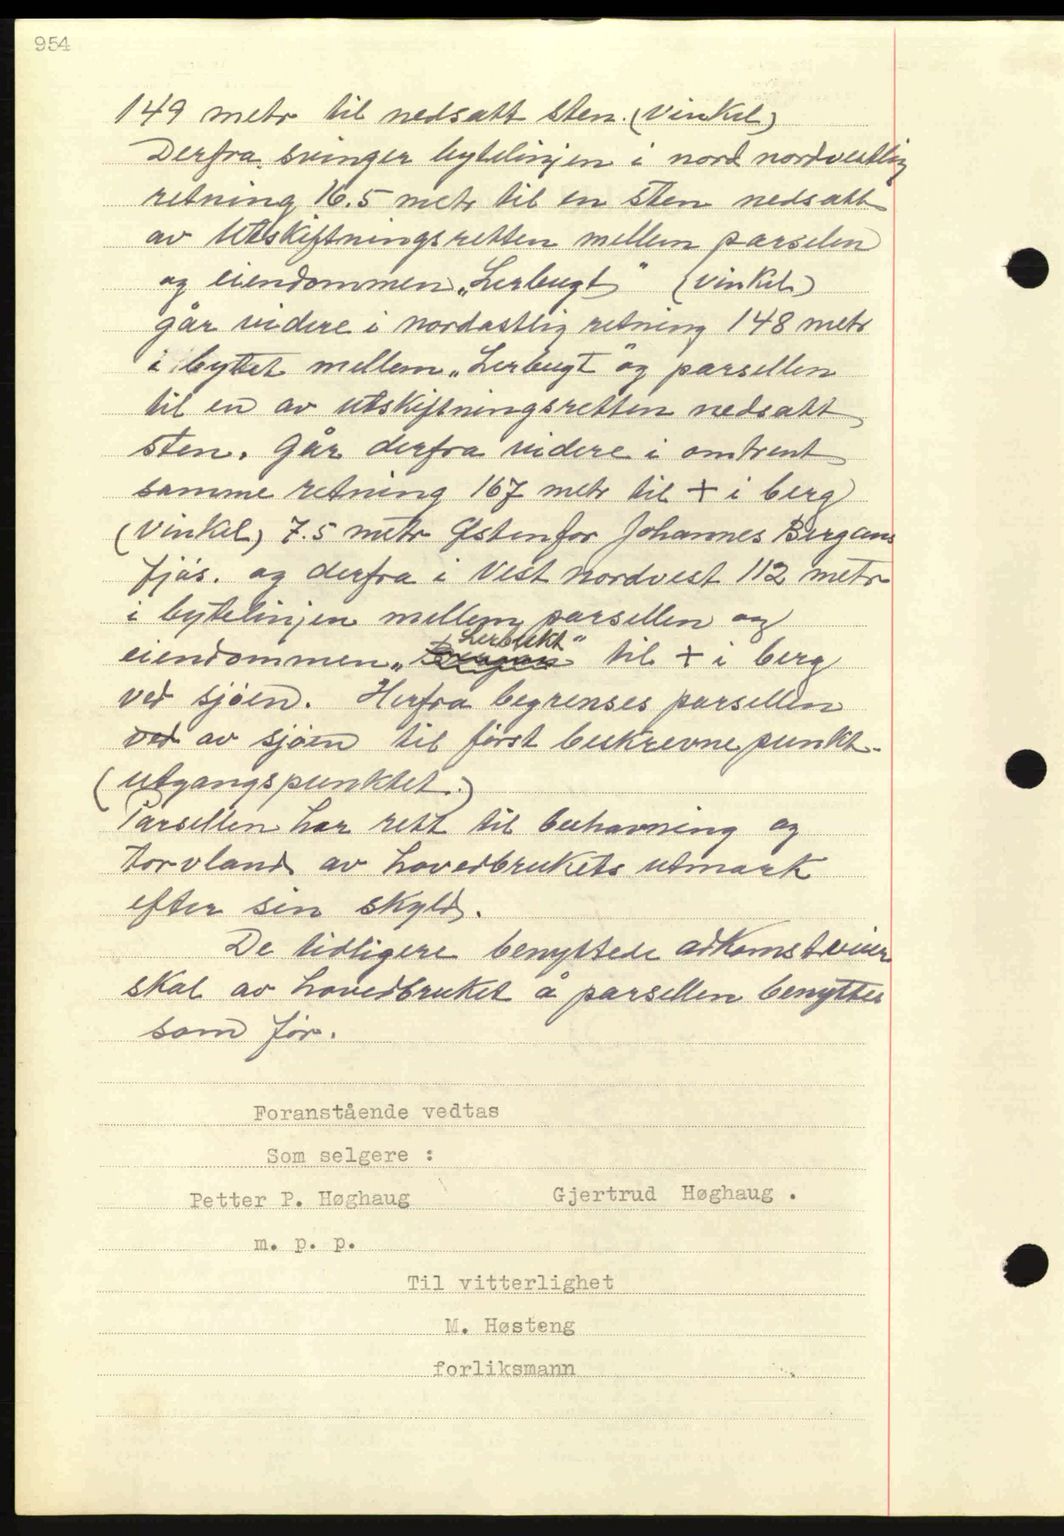 954
149 metr til nedsatt sten. (Vinkel)
Derfra svinger bytelinjen i nord nordvestlig
retning 16.5 metr til en sten nedsatt
av Utskiftningsretten mellem parselen
og eiendommen „Lerbugt" (vinkel)
går videre i nordastlig retning 148 metr
i byttet mellem „Lerbugt" og parsellen
til en av utskiftningsretten nedsatt
sten. Går derfra videre i omtrent
samme retning 167 metr til + i berg
(Vinkel) 7.5 metr Østenfor Johannes Bergans
fjøs. og derfra i Vest nordvest 112 metr
i bytelinjen mellem parsellen og
eiendommen „Lerbukt" til + i berg
ved sjøen. Herfra begrenses parsellen
ved av sjøen til først beskrevne punkt.
(utgangspunktet.)
Parsellen har rett til buhavning og
torvland av hovedbrukets utmark
efter sin skyld.
De tidligere benyttede adkomstveier
skal av hovedbruket å parsellen benyttes
som før.
Foranstående vedtas
Som selgere :
Petter P. Høghaug Gjertrud Høghaug .
m. p. p.
Til vitterlighet
M. Høsteng
forliksmann